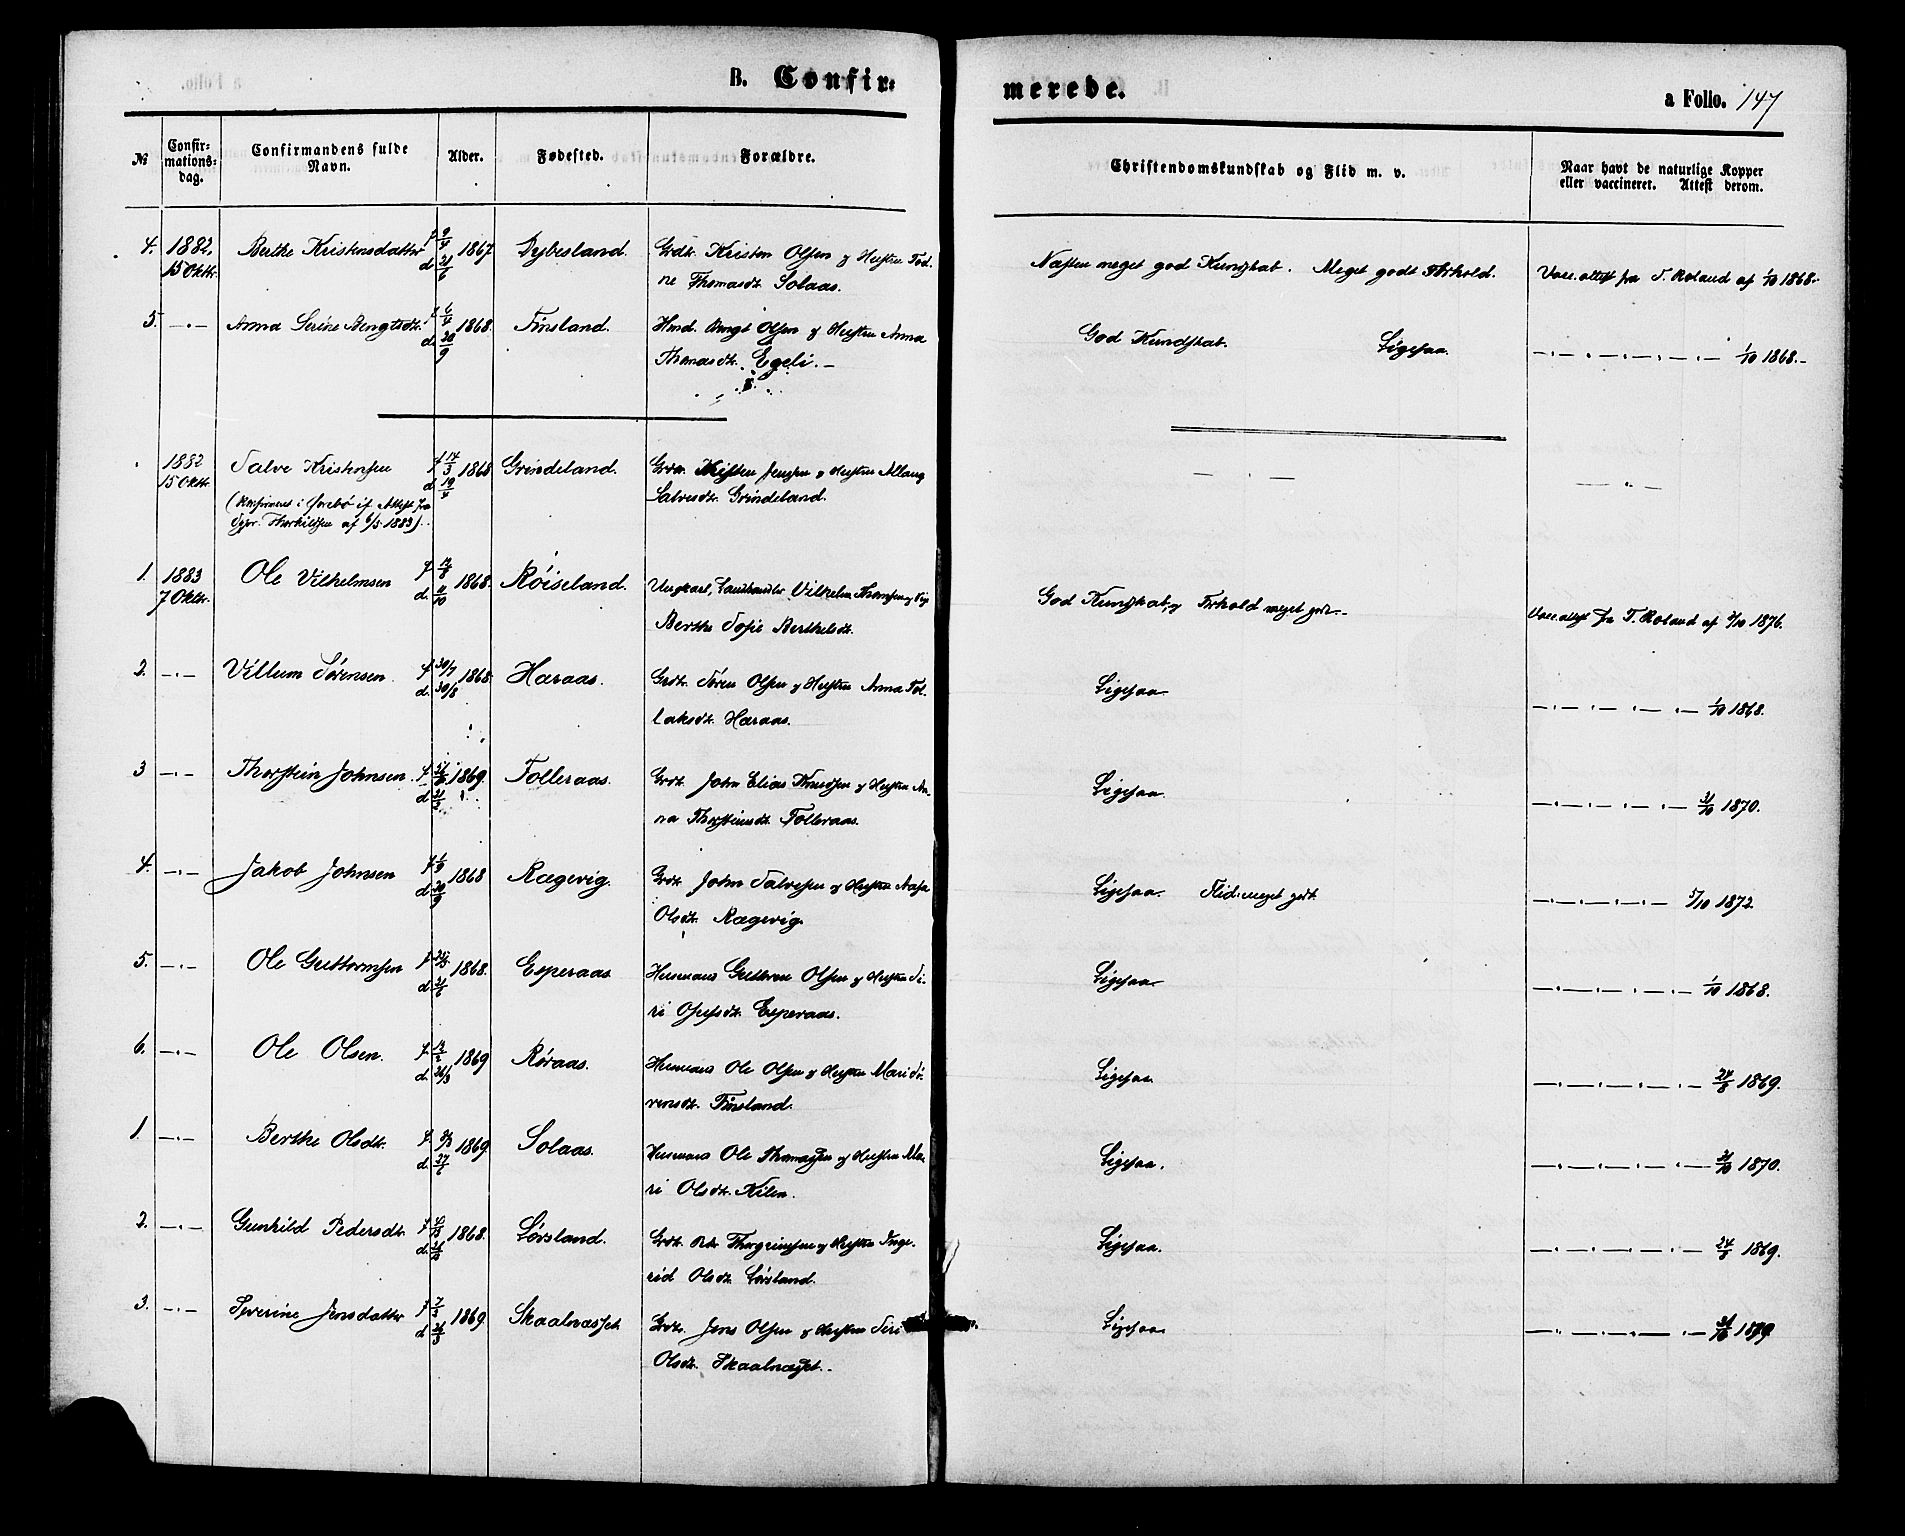 B. Confir-
merede.
a Folio. 147
№
Confir-
mations-
dag.
Confirmandens fulde
Navn.
Alder.
Fødested.
Forældre.
Christendomskundskab og Flid m. v.
Naar havt de naturlige Kopper
eller vaccineret. Attest derom.
4. 1882. Berthe Kristensdatter f 9/4 1867 Dybesland. Grdr. Kristen Olsen og Hustru Tod-
15 Oktr. d 21/6 ne Thomasdt. Solaas.
Næsten meget god Kundskab. Meget godt Forhold. Vacc. attest fra T. Roland af 1/10 1868.
5. —"— Anna Serine Bengtsdt. f 6/4 1868. Finsland. Hmd. Bengt Olsen og Hustru Anna
d 20/9 Thomasdt. Egeli.
God Kundskab. Ligesaa. —"—"—"— 1/10 1868.
1882 Salve Kristensen f 14/3 1868 Grindeland. Grdr. Kristen Jensen og Hustru Allaug
15 Oktr. d 19/4 Salvesdt. Grindeland.
(Konfirmeret i Øvrebø if. Attest fra
Sgpr. Therkildsen af 6/5 1883).
— " —
1. 1883 Ole Vilhelmsen f. 12/8 1868. Røiseland. Ungkarl, Landhandler Vilhelm Thomsen og Pige
7 Oktr. d. 11/10 Berthe Sofie Bertheldt.
God Kundskab, og Forhold meget godt. Vacc. attest fra T. Roland af 3/10 1876.
2. —"— Villum Sørensen f. 30/7 1868 Haraas. Grdr. Søren Olsen og Hustru Anna Tol-
d. 30/8 laksdt. Haraas.
Ligesaa —"—"—"— 1/10 1868.
3 —"— Thorstein Johnsen f. 1869. Tolleraas. Grdr. John Elias Knudsen og Hustru An-
d 21/3 na Thorsteinsdt. Tolleraas.
Ligesaa —"—"—"— 31/10 1870.
4. —"— Jakob Johnsen f. 1/9 1868 Rægevig. Grdr. John Salvesen og Hustru Aasa
d. 20/9 Olsdt. Rægevig.
Ligesaa. Flid: meget godt. —"—"—"— 5/10 1872.
5. —"— Ole Guttormsen f 1868. Esperaas. Husmand Guttorm Olsen og Hustru Si-
d. 21/6 ri Ofusdt. Esperaas.
Ligesaa —"—"—"— 1/10 1868.
6. —"— Ole Olsen. f. 14/2 1869 Røraas. Husmand Ole Olsen og Hustru Mari Sø-
d. 26/3 rensdt. Finsland.
Ligesaa. —"—"—"— 24/8 1869.
1. —"— Berthe Olsdt. f. 1869. Solaas. Husmand Ole Thomassen og Hustru Ma-
d. 27/6 ri Olsdt. Kilen.
Ligesaa. —"—"—"— 31/10 1870.
2. —"— Gunhild Pedersdt. f 1868. Løvsland. Grdr. Thorgrimsen og Hustru Inge-
d. rid Olsdt. Løvsland.
Ligesaa. —"—"—"— 24/8 1869.
3. —"— Severine Jensdatter f 7/3 1869. Skaalnæsset. Grdr. Jens Olsen og Hustru Siri
d Olsdt. Skaalnæsset.
Ligesaa —"—"—"—